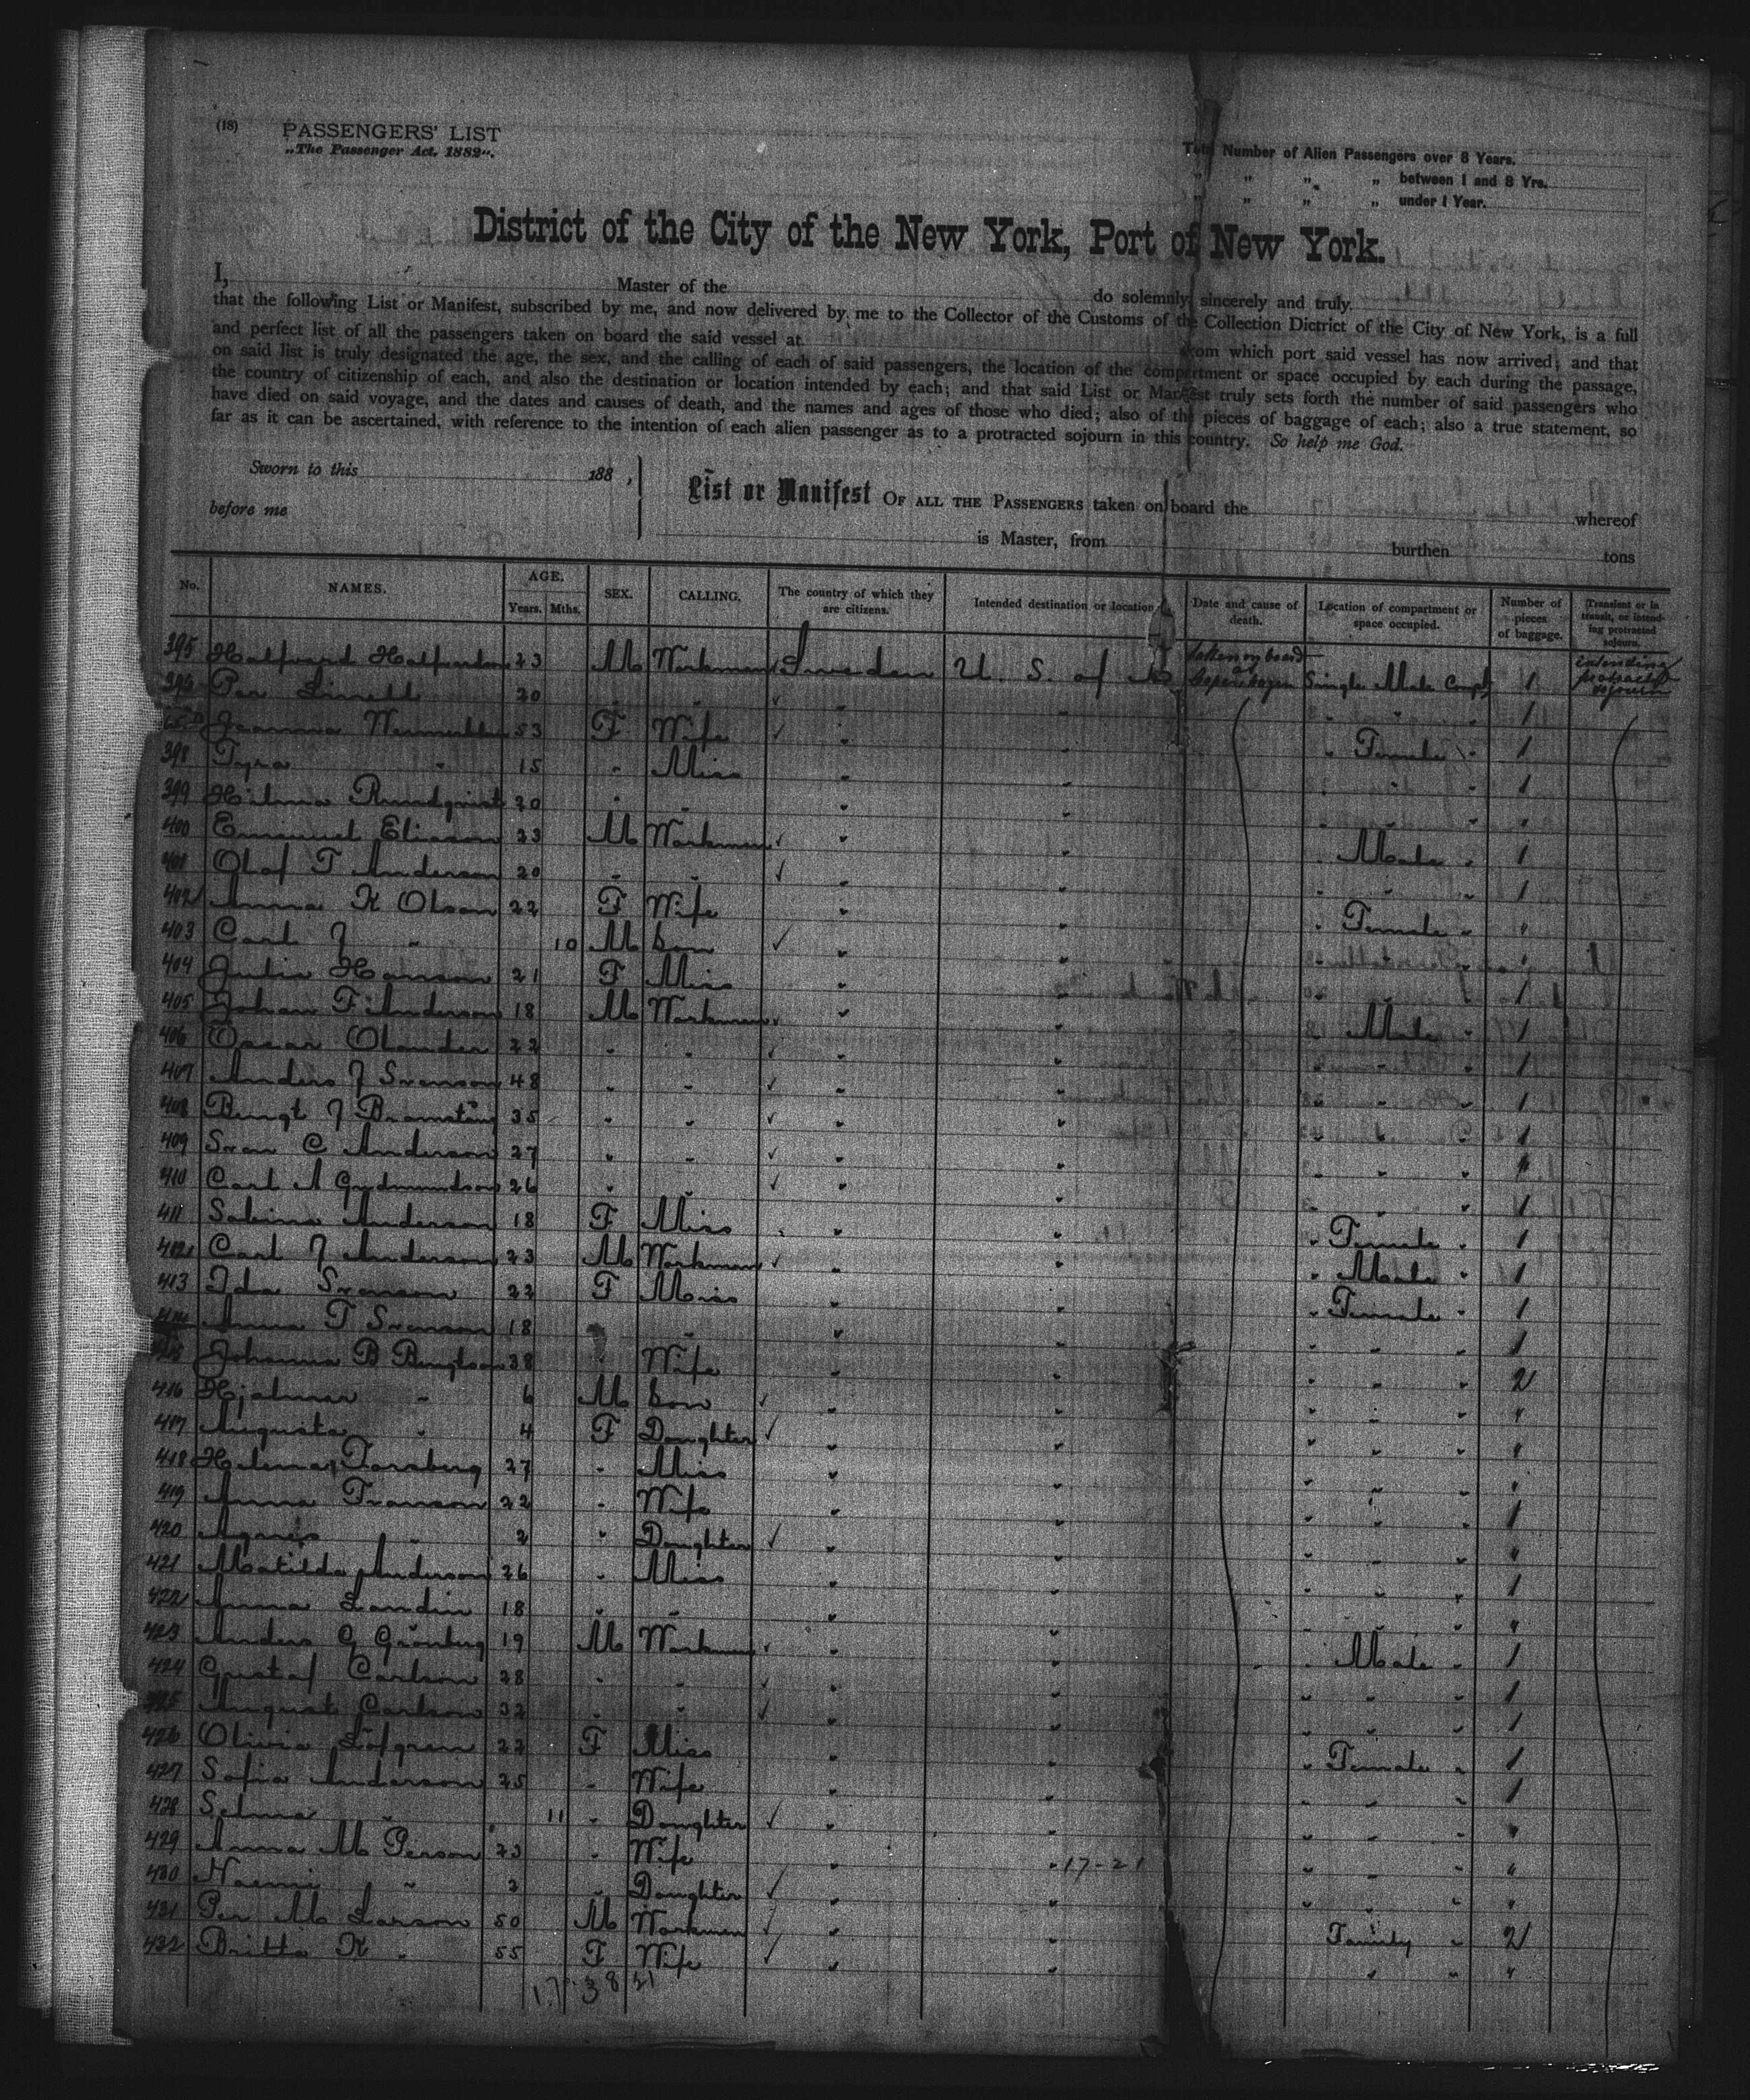 (18) PASSENGERS' LIST
„The Passenger Act, 1882“.
Total Number of Alien Passengers over 8 Years.
„ „ „ „ between 1 and 8 Yrs.
„ „ „ „ under 1 Year.
District of the City of the New York, Port of New York.
I, Master of the do solemnly sincerely and truly
that the following List or Manifest, subscribed by me, and now delivered by me to the Collector of the Customs of the Collection Dictrict of the City of New York, is a full
and perfect list of all the passengers taken on board the said vessel at from which port said vessel has now arrived; and that
on said list is truly designated the age, the sex, and the calling of each of said passengers, the location of the compartment or space occupied by each during the passage,
the country of citizenship of each, and also the destination or location intended by each; and that said List or Manifest truly sets forth the number of said passengers who
have died on said voyage, and the dates and causes of death, and the names and ages of those who died; also of the pieces of baggage of each; also a true statement, so
far as it can be ascertained, with reference to the intention of each alien passenger as to a protracted sojourn in this country. So help me God.
Sworn to this 188 ,
before me
List or Manifest OF ALL THE PASSENGERS taken on board the whereof
is Master, from burthen tons
No. NAMES. AGE. Years. Mths. SEX. CALLING. The country of which they are citizens. Intended destination or location Date and cause of death. Location of compartment or space occupied. Number of pieces of baggage. Transient or in transit, or intending protracted sojourn.
395 23 M Workman Sweden U. S. of Taken on board at Copenhagen Single Male Compt 1 intending protracted sojourn
396 Per Linnell 20 " " " " " " " 1
53 F Wife " " " Female " 1
398 Tyra " 15 " Miss " " " " " 1
399 Hilma Rundqvist 20 " " " " " " " "
400 Emanuel Eliason 23 M Workman " " " Male " 1
401 Olof T Anderson 20 " " " " " " " 1
402 Anna K Olson 22 F Wife " " " Female " "
403 Carl J " 10 M Son " " " " " "
404 Julia Hanson 21 F Miss " " " " " 1
405 Johan F Anderson 18 M Workman " " " Male " 1
406 Oscar Olander 22 " " " " " " " 1
407 Anders J Svenson 48 " " " " " " " 1
408 Bengt J Bramstång 35 " " " " " " " 1
409 Sven C Anderson 27 " " " " " " " "
410 Carl A Gudmundson 26 " " " " " " " 1
411 Sabina Anderson 18 F Miss " " " Female " 1
412 Carl J Anderson 23 M Workman " " " Male " 1
413 Ida Svenson 22 F Miss " " " Female " 1
414 Anna T Svenson 18 " " " " " " " 1
415 Johanna B Bengtson 38 " Wife " " " " " 2
416 Hjalmar " 6 M Son " " " " " "
417 Augusta " 4 F Daughter " " " " " "
418 Helena Forsberg 27 " Miss " " " " " "
419 Anna Franson 22 " Wife " " " " " 1
420 Agnes " 2 " Daughter " " " " " "
421 Matilda Anderson 26 " Miss " " " " " 1
422 Anna Landin 18 " " " " " " " "
423 Anders G Grönberg 19 M Workman " " " Male " 1
424 Gustaf Carlson 28 " " " " " " " 1
425 August Carlson 32 " " " " " " " 1
426 Olivia Löfgren 22 F Miss " " " Female " 1
427 Sofia Anderson 25 " Wife " " " " " 1
428 Selma " 11 " Daughter " " " " " "
429 Anna M Person 23 " Wife " " 17-21 " " " "
430 Naemi " 2 " Daughter " " " " " "
431 Per M Larson 50 M Workman " " Family " 2
432 Britta K " 55 F Wife " " " " "
17 38 21